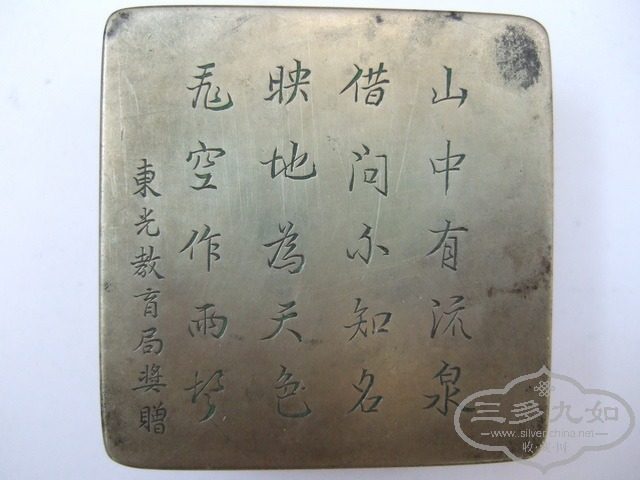 山中有流泉
借問不知名
映地為天色
飛空作雨聲
東光教育局奬贈
三多九如
www.silverchina.net